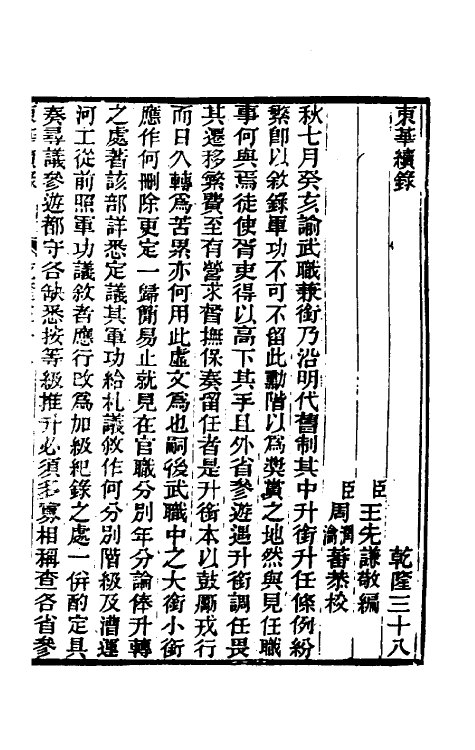 東華續錄
乾隆三十八
臣王先謙敬編
臣周潤蕃周瀹蕃恭校
秋七月癸亥諭武職兼銜乃沿明代舊制其中升銜升任條例紛
繁卽以敘錄軍功不可不留此勳階以爲獎賞之地然與見任職
事何與焉徒使胥吏得以高下其手且外省參遊遇升銜調任畏
其遷移繁費至有營求督撫保奏留任者是升銜本以鼓勵戎行
而日久轉爲苦累亦何用此虛文爲也嗣後武職中之大銜小銜
應作何刪除更定一歸簡易止就見在官職分別年分論俸升轉
之處著該部詳悉定議其軍功給札議敘作何分別階級及漕運
河工從前照軍功議敘者應行改爲加級紀錄之處一併酌定具
奏尋議參遊都守各缺悉按等級推升必須多寡相稱查各省參